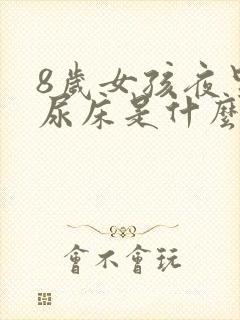 8歲女孩夜
尿床是什麼
會不會玩